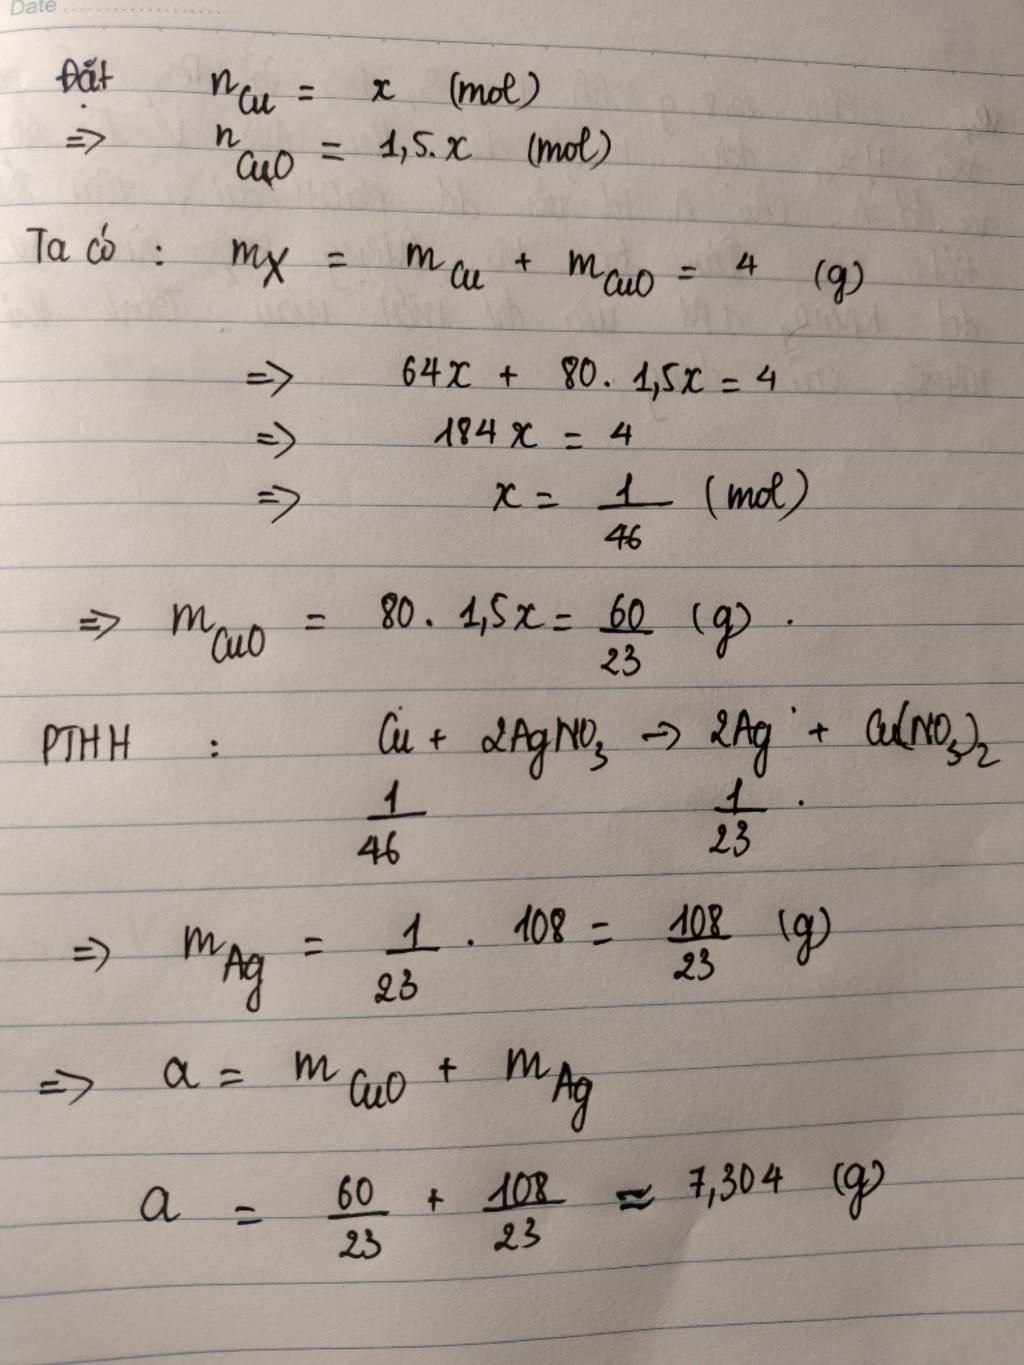 Date
Đặt n Cu = x (mol)
=> n CuO = 1,5.x (mol)
Ta có : mX = m Cu + m CuO = 4 (g)
=> 64x + 80. 1,5x = 4
=> 184x = 4
=> x = 1/46 (mol)
=> m CuO = 80. 1,5x = 60/23 (g).
PTHH : Cu + 2AgNO3 -> 2Ag + Cu(NO3)2
1/46 1/23
=> m Ag = 1/23 . 108 = 108/23 (g)
=> a = m CuO + m Ag
a = 60/23 + 108/23 ≈ 7,304 (g)